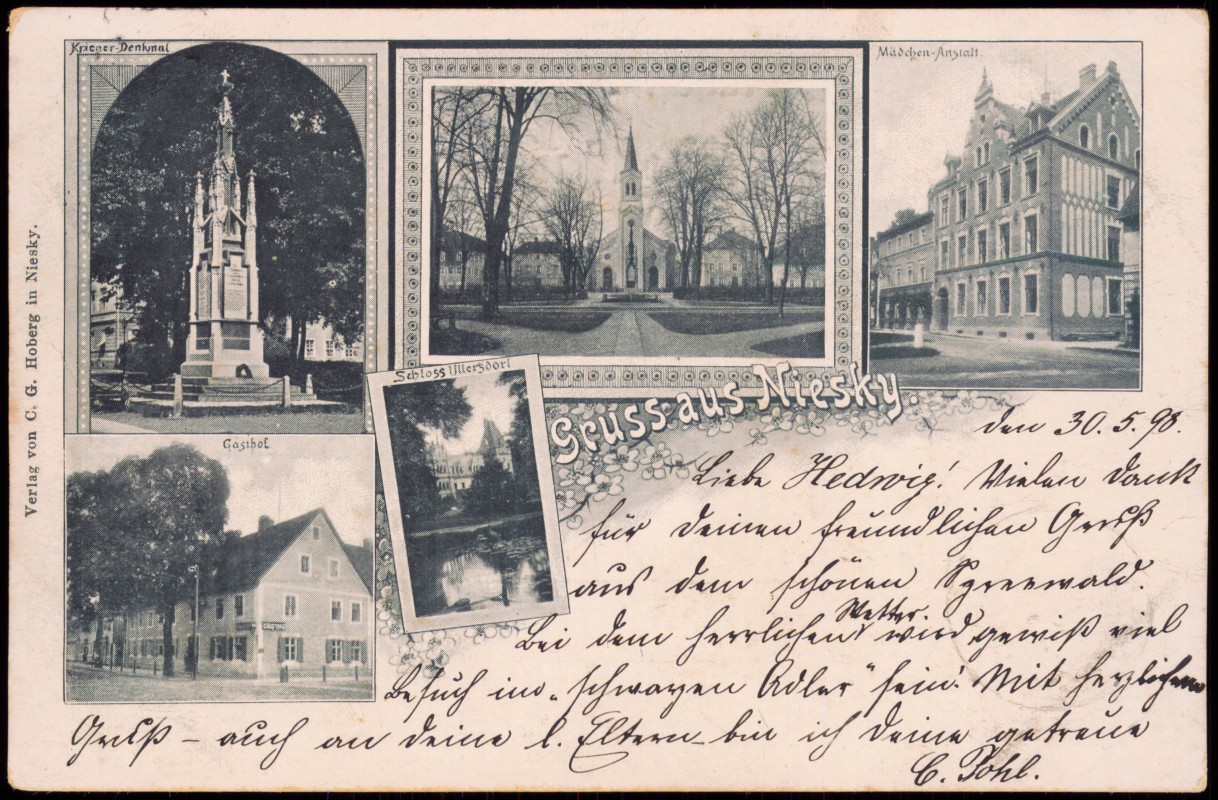 Krieger-Denkmal
Mädchen-Anstalt.
Schloss Ullersdorf
Gasthof
Gruss aus Niesky.
Verlag von C. G. Hoberg in Niesky.
den 30. 5. 98.
Liebe Hedwig! Vielen Dank
für deinen freundlichen Gruß
aus dem schönen Spreewald.
Bei dem herrlichen Wetter wird gewiß viel
Besuch im „schwarzen Adler" sein! Mit herzlichem
Gruß – auch an deine l. Eltern – bin ich deine getreue
C. Pohl.